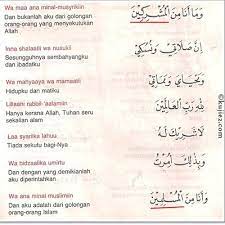 Wa maa ana minal-musyrikiin
Dan bukanlah aku dari golongan
orang-orang yang menyekutukan
Allah
وَمَا أَنَا مِنَ الْمُشْرِكِيْنَ
Inna shalaatii wa nusukii
Sesungguhnya sembahyangku
dan ibadatku
اِنَّ صَلَاتِيْ وَنُسُكِيْ
Wa mahyaaya wa mamaati
Hidupku dan matiku
وَمَحْيَايَ وَمَمَاتِيْ
Lillaahi rabbil-'aalamiin
Hanya kerana Allah, Tuhan seru
sekalian alam
لِلّٰهِ رَبِّ الْعَالَمِيْنَ
Laa syarika lahuu
Tiada sekutu bagi-Nya
لَا شَرِيْكَ لَهُ
Wa bidzaalika umirtu
Dan dengan yang demikianlah
aku diperintahkan
وَبِذٰلِكَ اُمِرْتُ
Wa ana minal muslimiin
Dan aku adalah dari golongan
orang-orang Islam
وَاَنَا مِنَ الْمُسْلِمِيْنَ